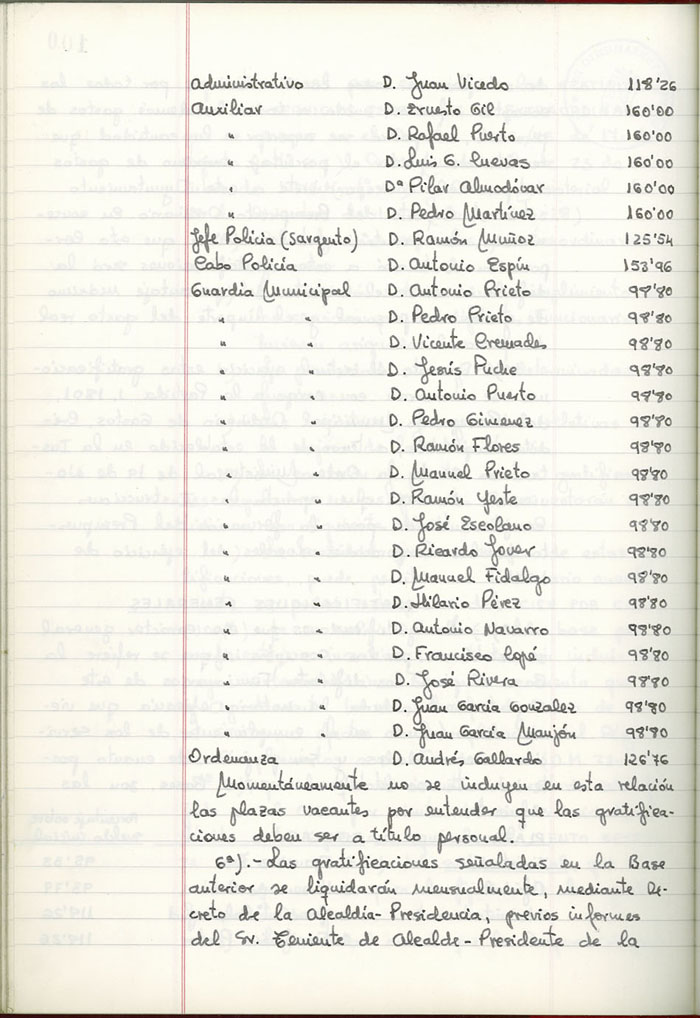 Administrativo D. Juan Vicedo 118'26
Auxiliar D. Ernesto Gil 160'00
" D. Rafael Puerto 160'00
" D. Luis G. Cuevas 160'00
" Dª Pilar Almodóvar 160'00
" D. Pedro Martínez 160'00
Jefe Policía (Sargento) D. Ramón Muñoz 125'54
Cabo Policía D. Antonio Espín 153'96
Guardia Municipal D. Antonio Prieto 98'80
" " D. Pedro Prieto 98'80
" " D. Vicente Cremades 98'80
" " D. Jesús Puche 98'80
" " D. Antonio Puerto 98'80
" " D. Pedro Gimenez 98'80
" " D. Ramón Flores 98'80
" " D. Manuel Prieto 98'80
" " D. Ramón Yeste 98'80
" " D. José Escolano 98'80
" " D. Ricardo Jover 98'80
" " D. Manuel Fidalgo 98'80
" " D. Hilario Pérez 98'80
" " D. Antonio Navarro 98'80
" " D. Francisco Copé 98'80
" " D. José Rivera 98'80
" " D. Juan García Gonzalez 98'80
" " D. Juan García Manjón 98'80
Ordenanza D. Andrés Gallardo 126'76
Momentáneamente no se incluyen en esta relación
las plazas vacantes por entender que las gratifica-
ciones deben ser a título personal.
6ª).- Las gratificaciones señaladas en la Base
anterior se liquidarán mensualmente, mediante De-
creto de la Alcaldía-Presidencia, previos informes
del Sr. Teniente de Alcalde-Presidente de la